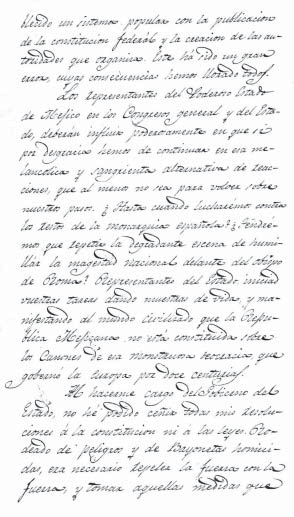 diendo un interes popular con la publicacion
de la constitucion federal y la creacion de las au-
toridades que organiza. Este há sido un gran
error, cuyas consecuencias hemos llorado todos.
Los representantes del Poderoso Estado
de Mejico en los Congresos general y del Esta-
do, deberán influir poderosamente en que si
por desgracia hemos de continuar en esa me-
lancolica y sangrienta alternativa de reac-
ciones, que al menos no sea para volver sobre
nuestros pasos. ¿Hasta cuando lucharemos contra
los restos de la monarquia española? ¿Tendré-
mos que repetir la degradante escena de humi-
llar la magestad nacional delante del Obispo
de Roma? Representantes del Estado: iniciad
vuestras tareas dando muestras de vida, y ma-
nifestando al mundo civilizado que la Repu-
blica Mejicana no está constituida sobre
los Canones de esa monstruosa teocracia que
gobernó la Europa por doce centurias.
Al hacerme cargo del Gobierno del
Estado, no hé podido ceñir todas mis resolu-
ciones á la constitucion ni á las leyes. Ro-
deado de peligros y de Bayonetas homici-
das, era necesario repeler la fuerza con la
fuerza, y tomar aquellas medidas que